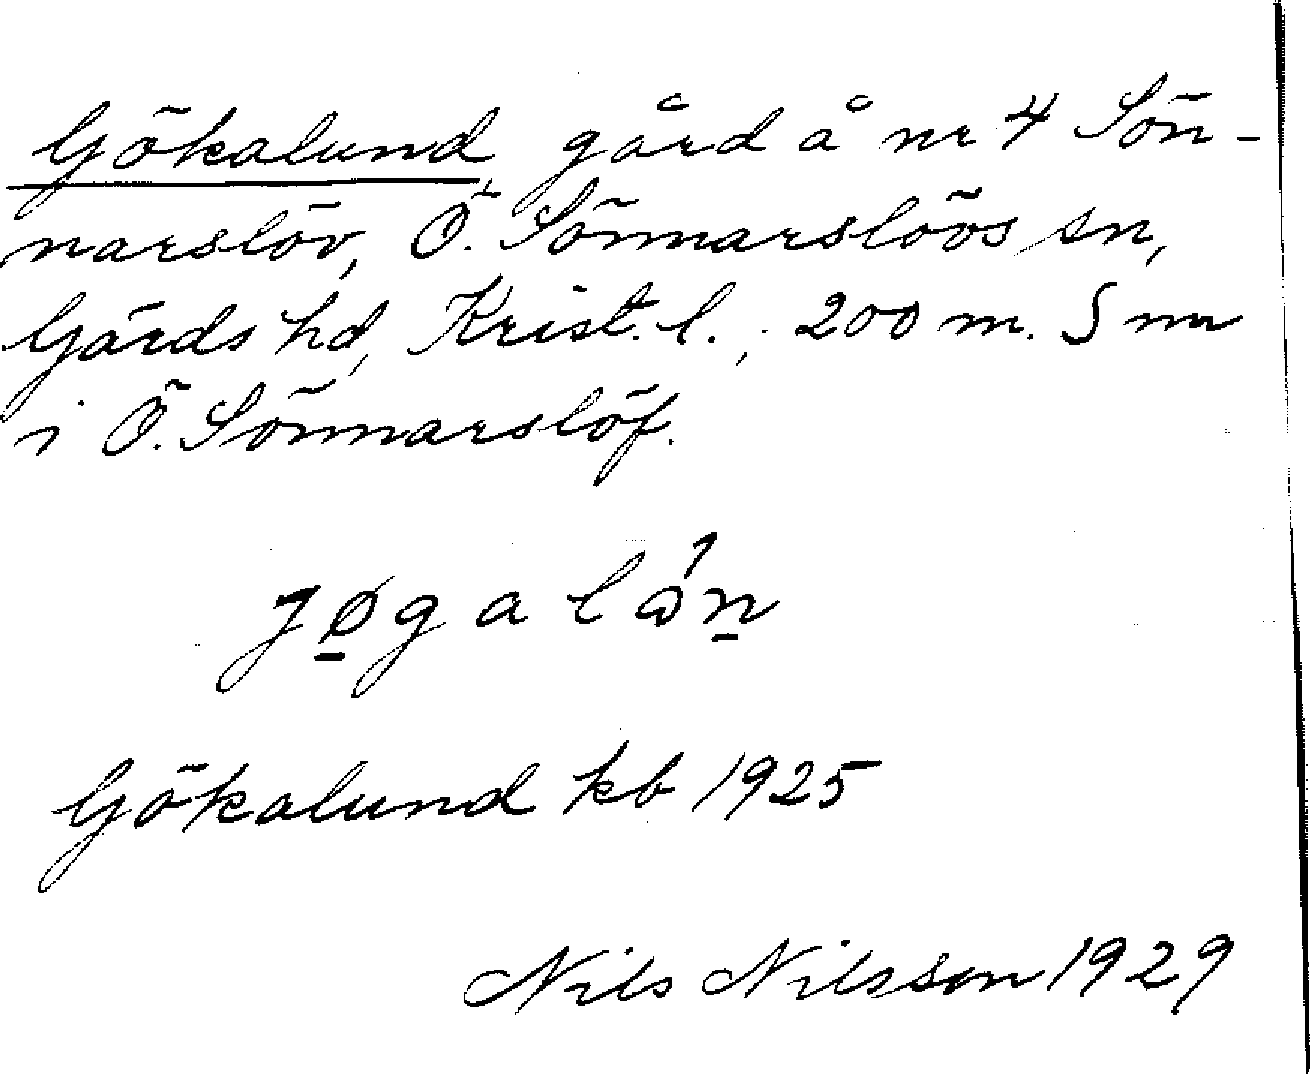 Gökalund, gård å nr 4 Sön-
narslöv, Ö. Sönnarslövs sn,
Gärds hd, Krist. l., 200 m. S nr
i Ö. Sönnarslöf.
Gökalund kb 1925
Nils Nilsson 1929